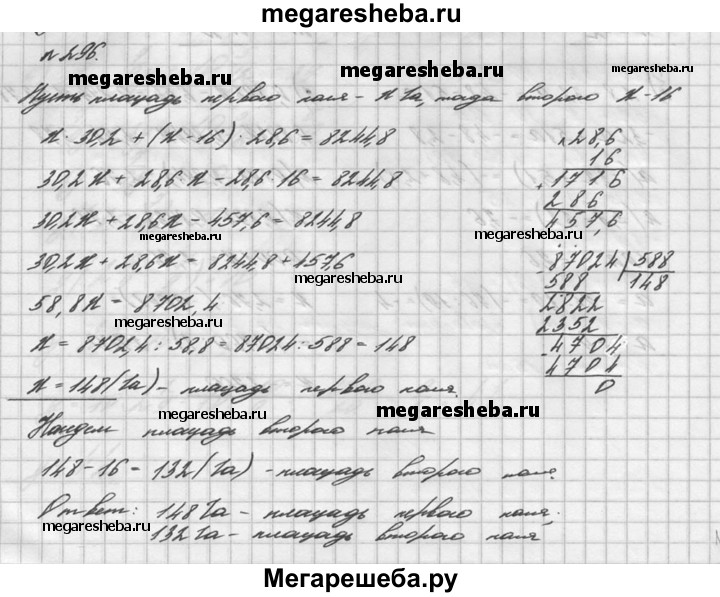 megaresheba.ru
n 296.
megaresheba.ru megaresheba.ru
Пусть площадь первого поля - x га, тогда второго x-16
x · 30,2 + (x - 16) · 28,6 = 8244,8
30,2x + 28,6 x - 28,6 · 16 = 8244,8
30,2x + 28,6x - 457,6 = 8244,8
megaresheba.ru
30,2x + 28,6x = 8244,8 + 457,6
megaresheba.ru
58,8x = 8702,4
megaresheba.ru
x = 8702,4 : 58,8 = 87024 : 588 = 148
x = 148 (га) - площадь первого поля.
× 28,6
16
+ 1716
286
457,6
megaresheba.ru
- 87024 | 588
588 148
2822
2352
- 4704
4704
0
megaresheba.ru megaresheba.ru
Найдем площадь второго поля
148 - 16 = 132 (га) - площадь второго поля.
Ответ: 148 га - площадь первого поля,
megaresheba.ru megaresheba.ru
132 га - площадь второго поля
Мегарешеба.ру